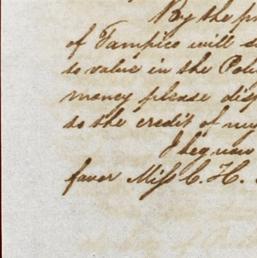 By the pr
of Tampico will s
to value in the Pol
money please disp
to the credit of my
I beg you
favor Miss C. H.